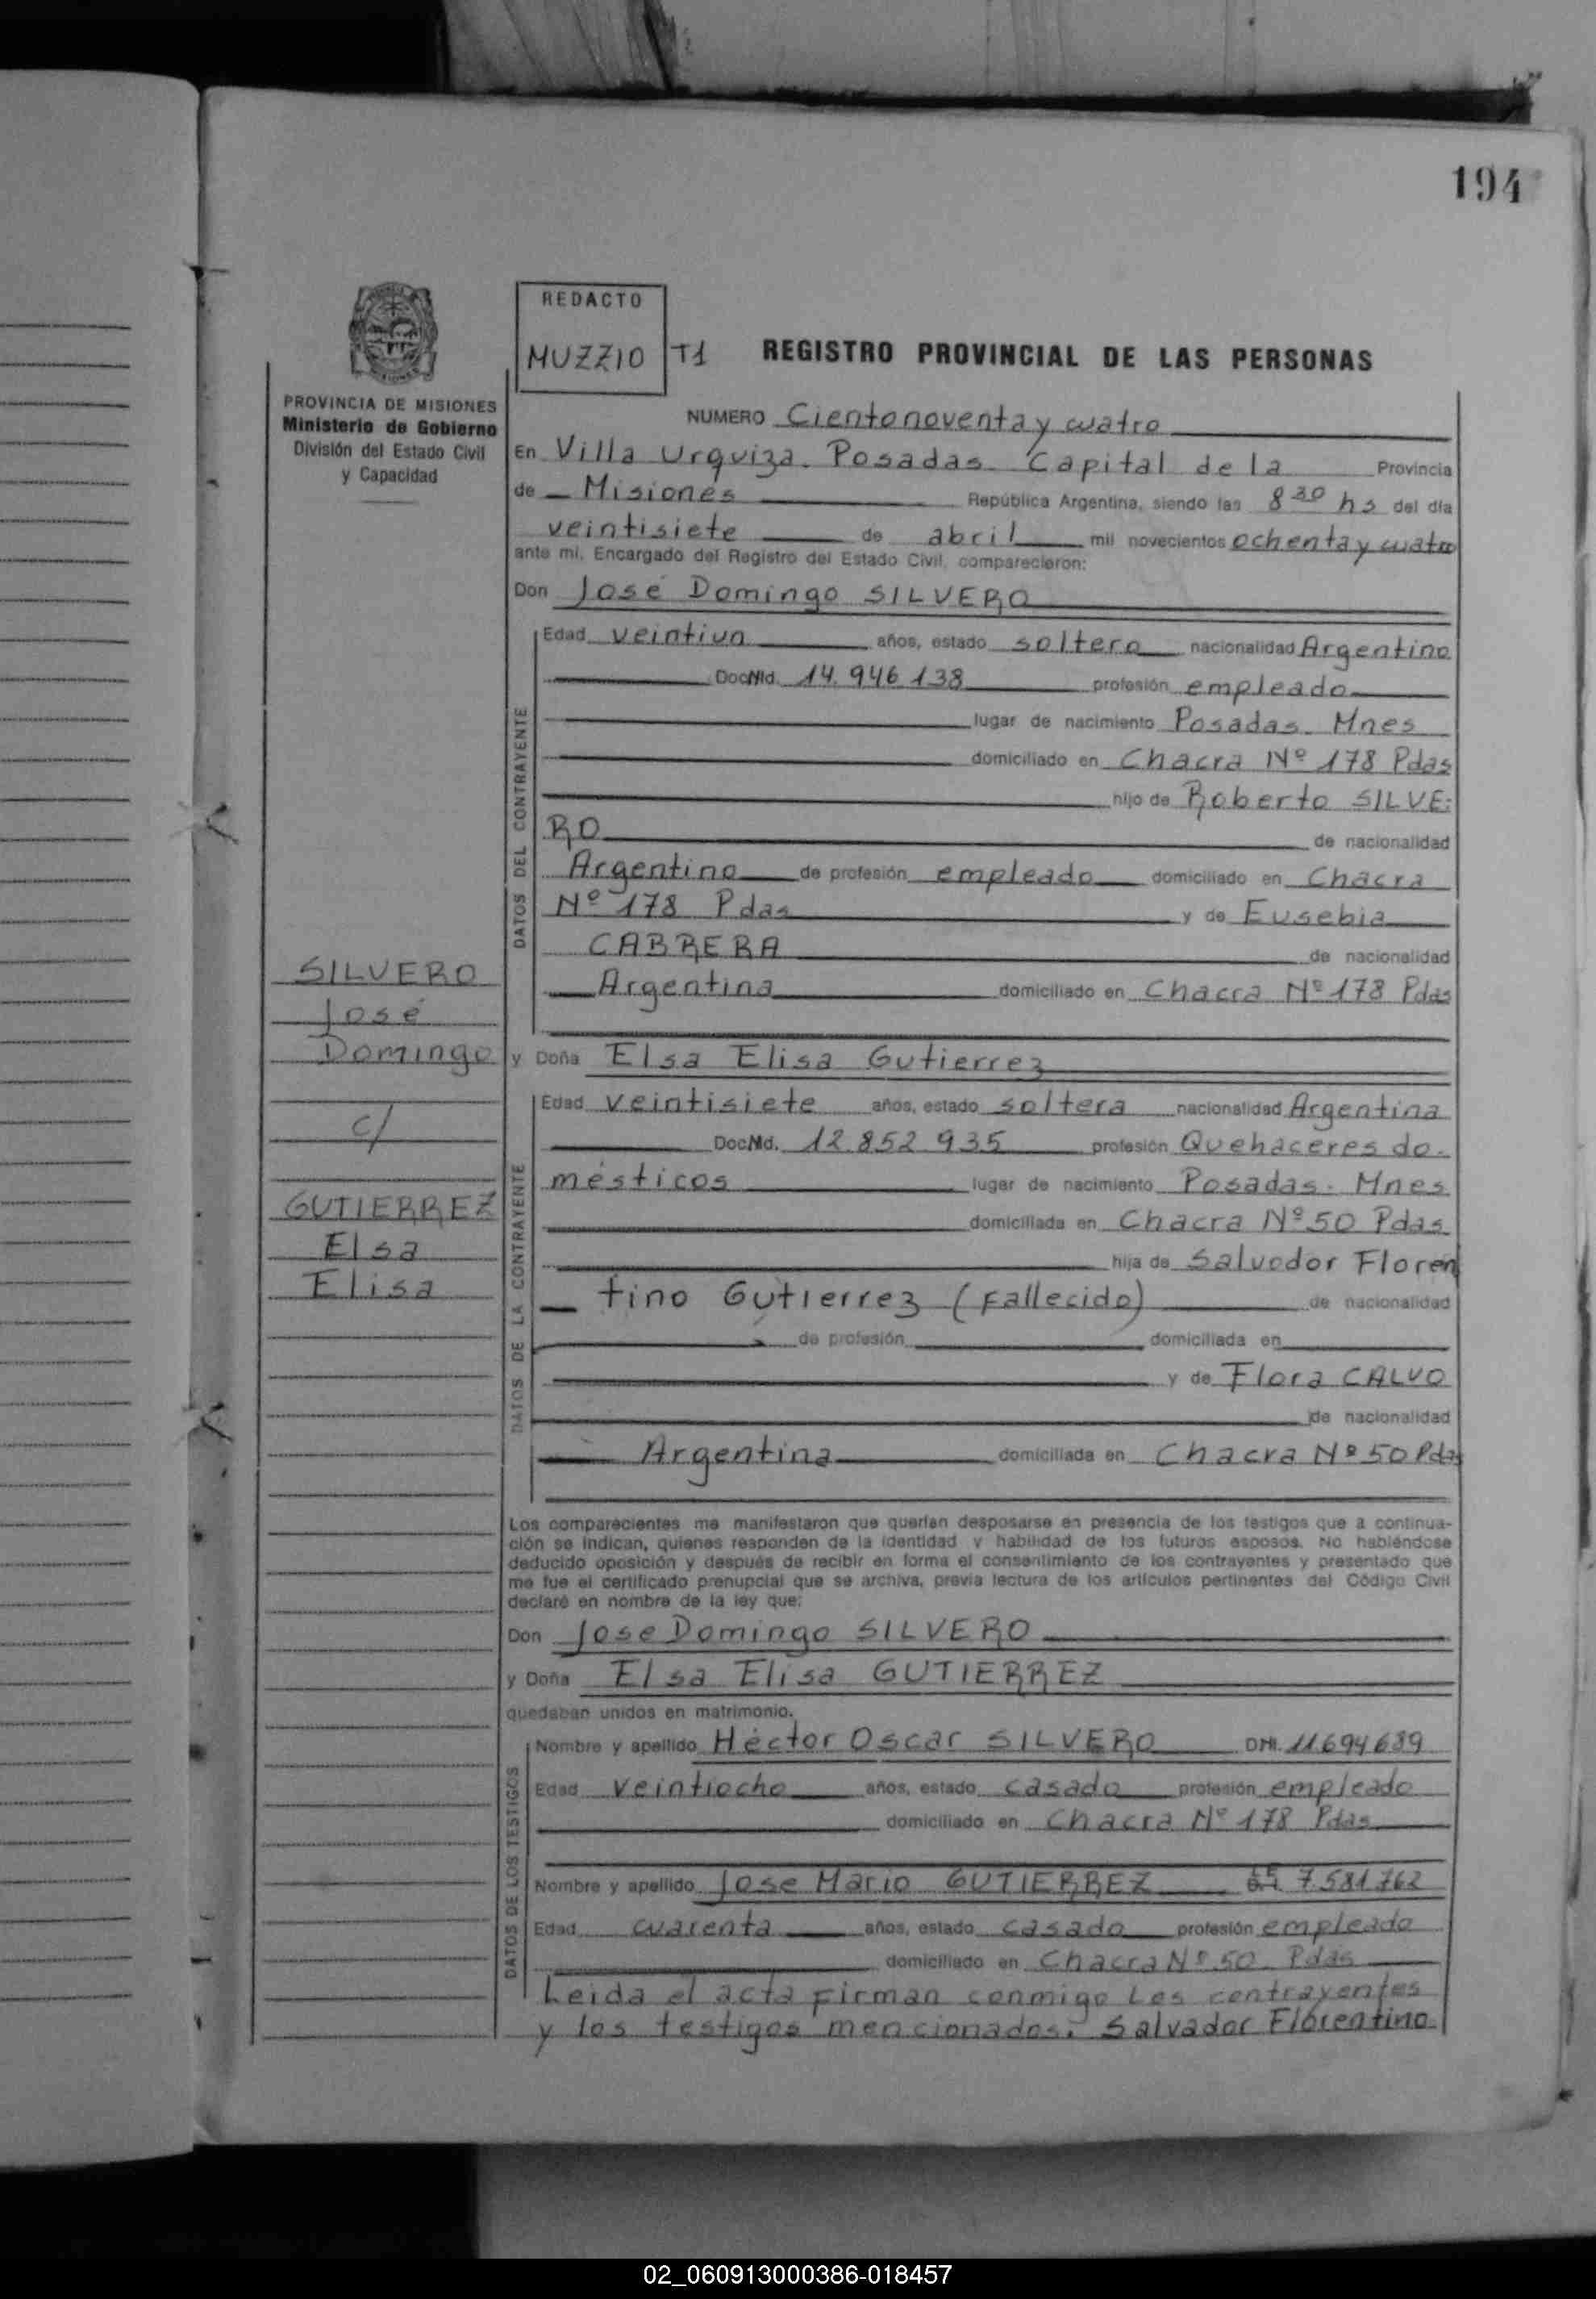 194
REDACTO
MUZZIO T1 REGISTRO PROVINCIAL DE LAS PERSONAS
PROVINCIA DE MISIONES
Ministerio de Gobierno
División del Estado Civil
y Capacidad
NUMERO Ciento noventa y cuatro
En Villa Urquiza. Posadas. Capital de la Provincia
de Misiones República Argentina, siendo las 8 30 hs del día
veintisiete de abril mil novecientos ochenta y cuatro
ante mi, Encargado del Registro del Estado Civil, comparecieron:
Don José Domingo SILVERO
DATOS DEL CONTRAYENTE
Edad veintiun años, estado soltero nacionalidad Argentino
Doc. Nld. 14.946.138 profesión empleado
lugar de nacimiento Posadas. Mnes
domiciliado en Chacra Nº 178 Pdas
hijo de Roberto SILVE-
RO de nacionalidad
Argentino de profesión empleado domiciliado en Chacra
Nº 178 Pdas y de Eusebia
CABRERA de nacionalidad
Argentina domiciliado en Chacra Nº 178 Pdas
SILVERO
José
Domingo
c/
GUTIERREZ
Elsa
Elisa
y Doña Elsa Elisa Gutierrez
DATOS DE LA CONTRAYENTE
Edad veintisiete años, estado soltera nacionalidad Argentina
Doc. Nld. 12.852.935 profesión Quehaceres do-
mésticos lugar de nacimiento Posadas. Mnes
domiciliada en Chacra Nº 50 Pdas
hija de Salvador Floren
tino Gutierrez (Fallecido) de nacionalidad
de profesión domiciliada en
y de Flora CALVO
de nacionalidad
Argentina domiciliada en Chacra Nº 50 Pdas
Los comparecientes me manifestaron que querían desposarse en presencia de los testigos que a continua-
ción se indican, quienes responden de la identidad y habilidad de los futuros esposos. No habiéndose
deducido oposición y después de recibir en forma el consentimiento de los contrayentes y presentado que
me fue el certificado prenupcial que se archiva, previa lectura de los artículos pertinentes del Código Civil
declaré en nombre de la ley que:
Don Jose Domingo SILVERO
y Doña Elsa Elisa GUTIERREZ
quedaban unidos en matrimonio.
DATOS DE LOS TESTIGOS
Nombre y apellido Héctor Oscar SILVERO DNI. 11694689
Edad veintiocho años, estado casado profesión empleado
domiciliado en Chacra Nº 178 Pdas
Nombre y apellido Jose Mario GUTIERREZ LE 7.581.762
Edad cuarenta años, estado casado profesión empleado
domiciliado en Chacra Nº 50 Pdas
Leida el acta firman conmigo Los contrayentes
y los testigos mencionados. Salvador Florentino
02_060913000386-018457